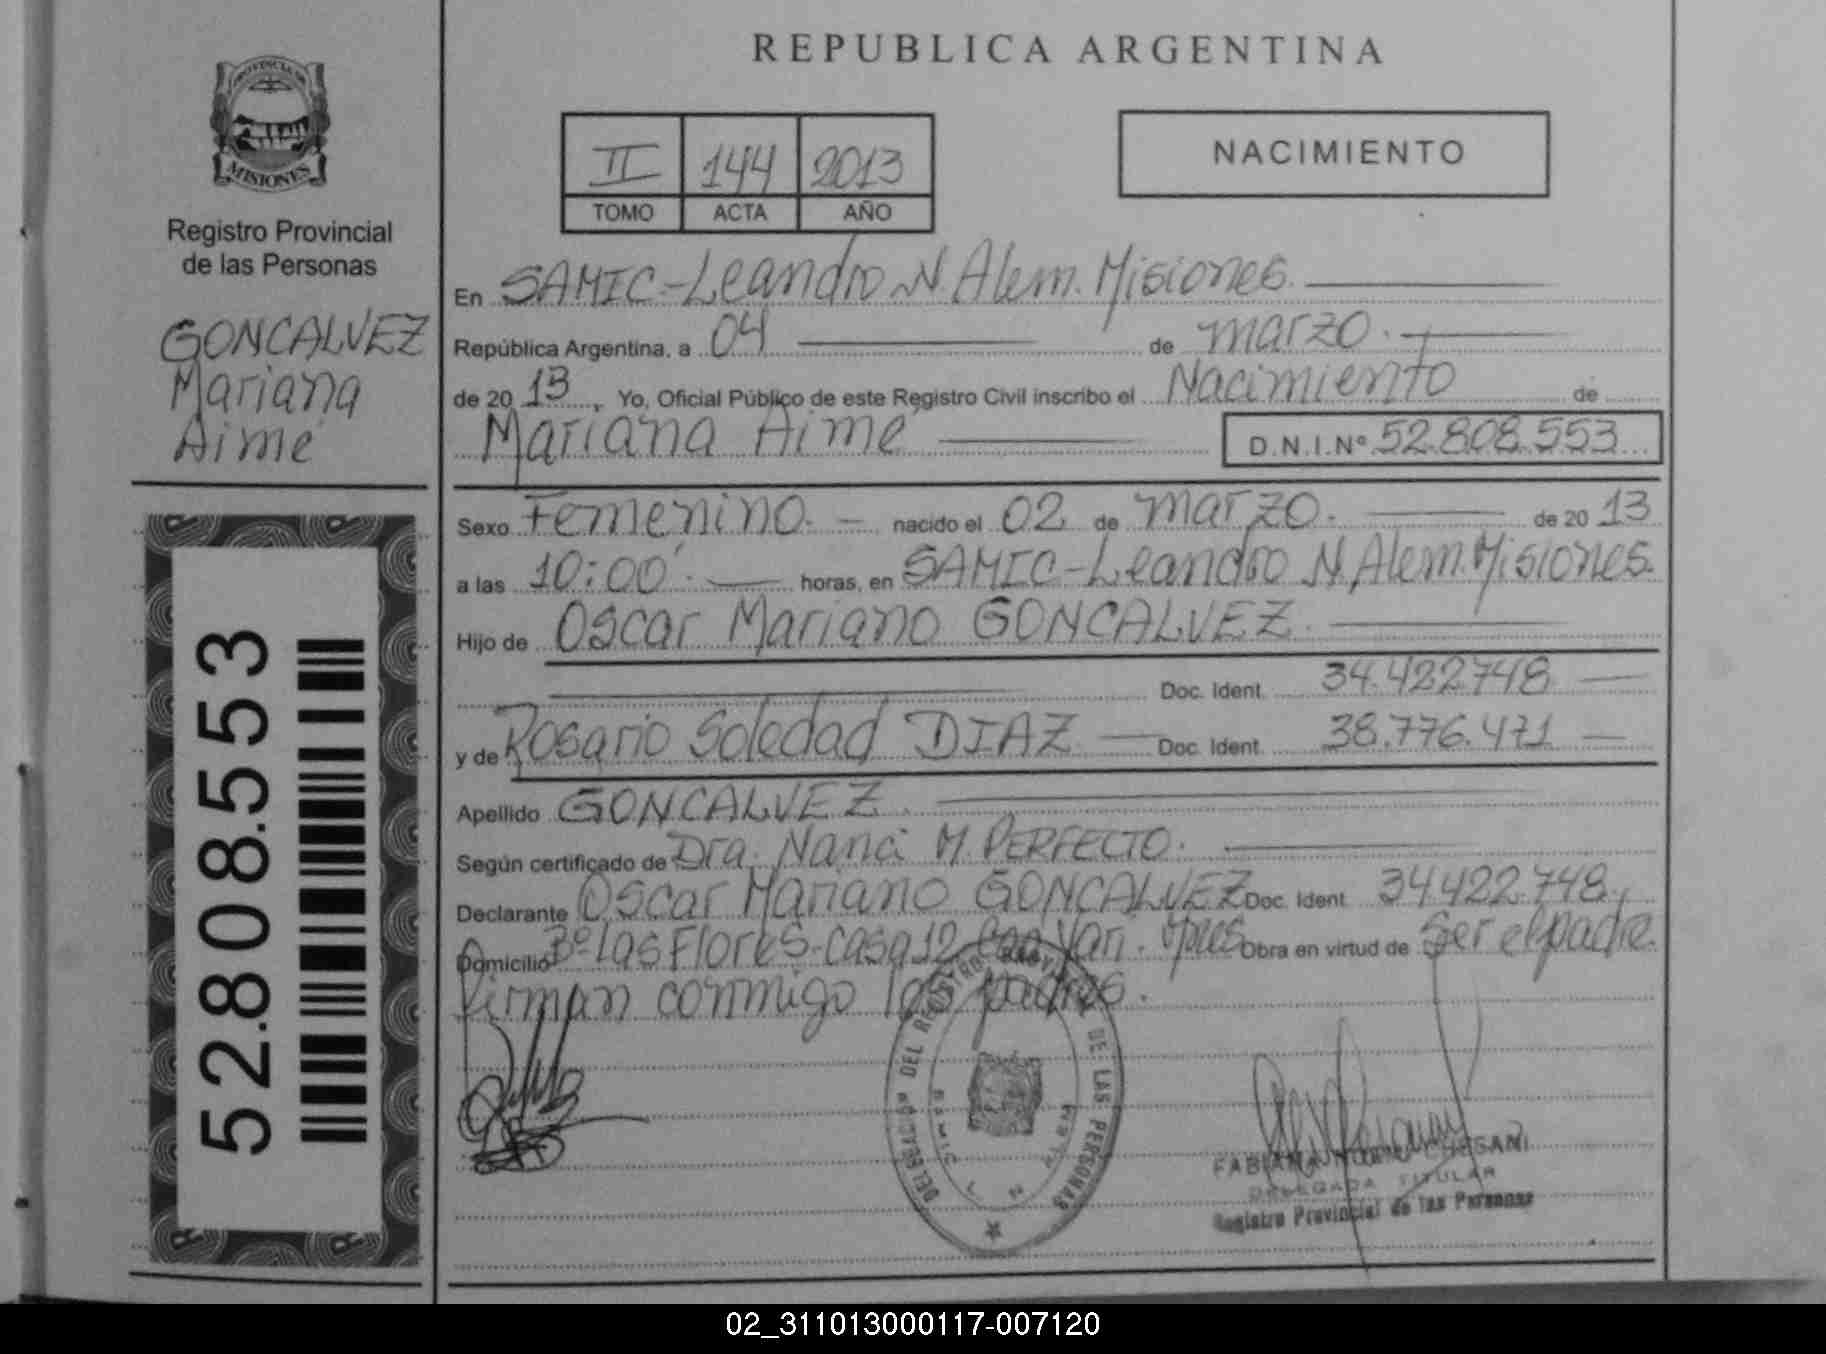 PROVINCIA DE
MISIONES
Registro Provincial
de las Personas
GONCALVEZ
Mariana
Aimé
52.808.553
REPUBLICA ARGENTINA
II 144 2013
TOMO ACTA AÑO
NACIMIENTO
En SAMIC-Leandro N. Alem. Misiones.
República Argentina, a 04 de marzo.
de 2013, Yo, Oficial Público de este Registro Civil inscribo el Nacimiento de
Mariana Aimé D.N.I.Nº 52.808.553
Sexo Femenino. nacido el 02 de marzo. de 2013
a las 10:00'. horas, en SAMIC-Leandro N. Alem. Misiones.
Hijo de Oscar Mariano GONCALVEZ.
Doc. Ident. 34.422748
y de Rosario Soledad DIAZ Doc. Ident. 38.776.471
Apellido GONCALVEZ.
Según certificado de Dra. Nanci M. PERFECTO.
Declarante Oscar Mariano GONCALVEZ Doc. Ident. 34422.748,
Domicilio Bº Las Flores-casa 12 Obra en virtud de Ser el padre.
firman conmigo los padres.
DELEGACION DEL REGISTRO PROVINCIAL DE LAS PERSONAS
SAMIC
FABIANA CHESANI
DELEGADA TITULAR
Registro Provincial de las Personas
02_311013000117-007120